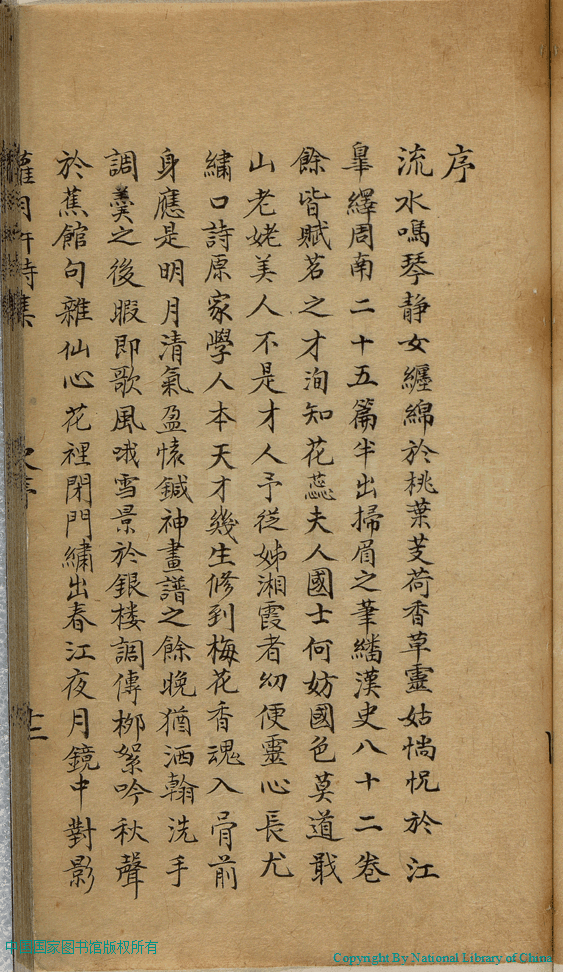 序
流水鳴琴静女纏綿於桃葉芰荷香草靈姑惝怳於江
臯繹周南二十五篇半出掃眉之筆繙漢史八十二卷
餘皆賦茗之才洵知花蕊夫人國士何妨國色莫道戢
山老姥美人不是才人予從姊湘霞者幼便靈心長尤
繡口詩原家學人本天才幾生修到梅花香魂入骨前
身應是明月清氣盈懷鍼神畫譜之餘晚猶洒翰洗手
調羹之後暇即歌風哦雪景於銀楼調傳栁絮吟秋聲
於蕉館句雜仙心花裡閉門繡出春江夜月鏡中對影
蘿月軒詩集
中国国家图书馆版权所有
Copyright By National Library of China